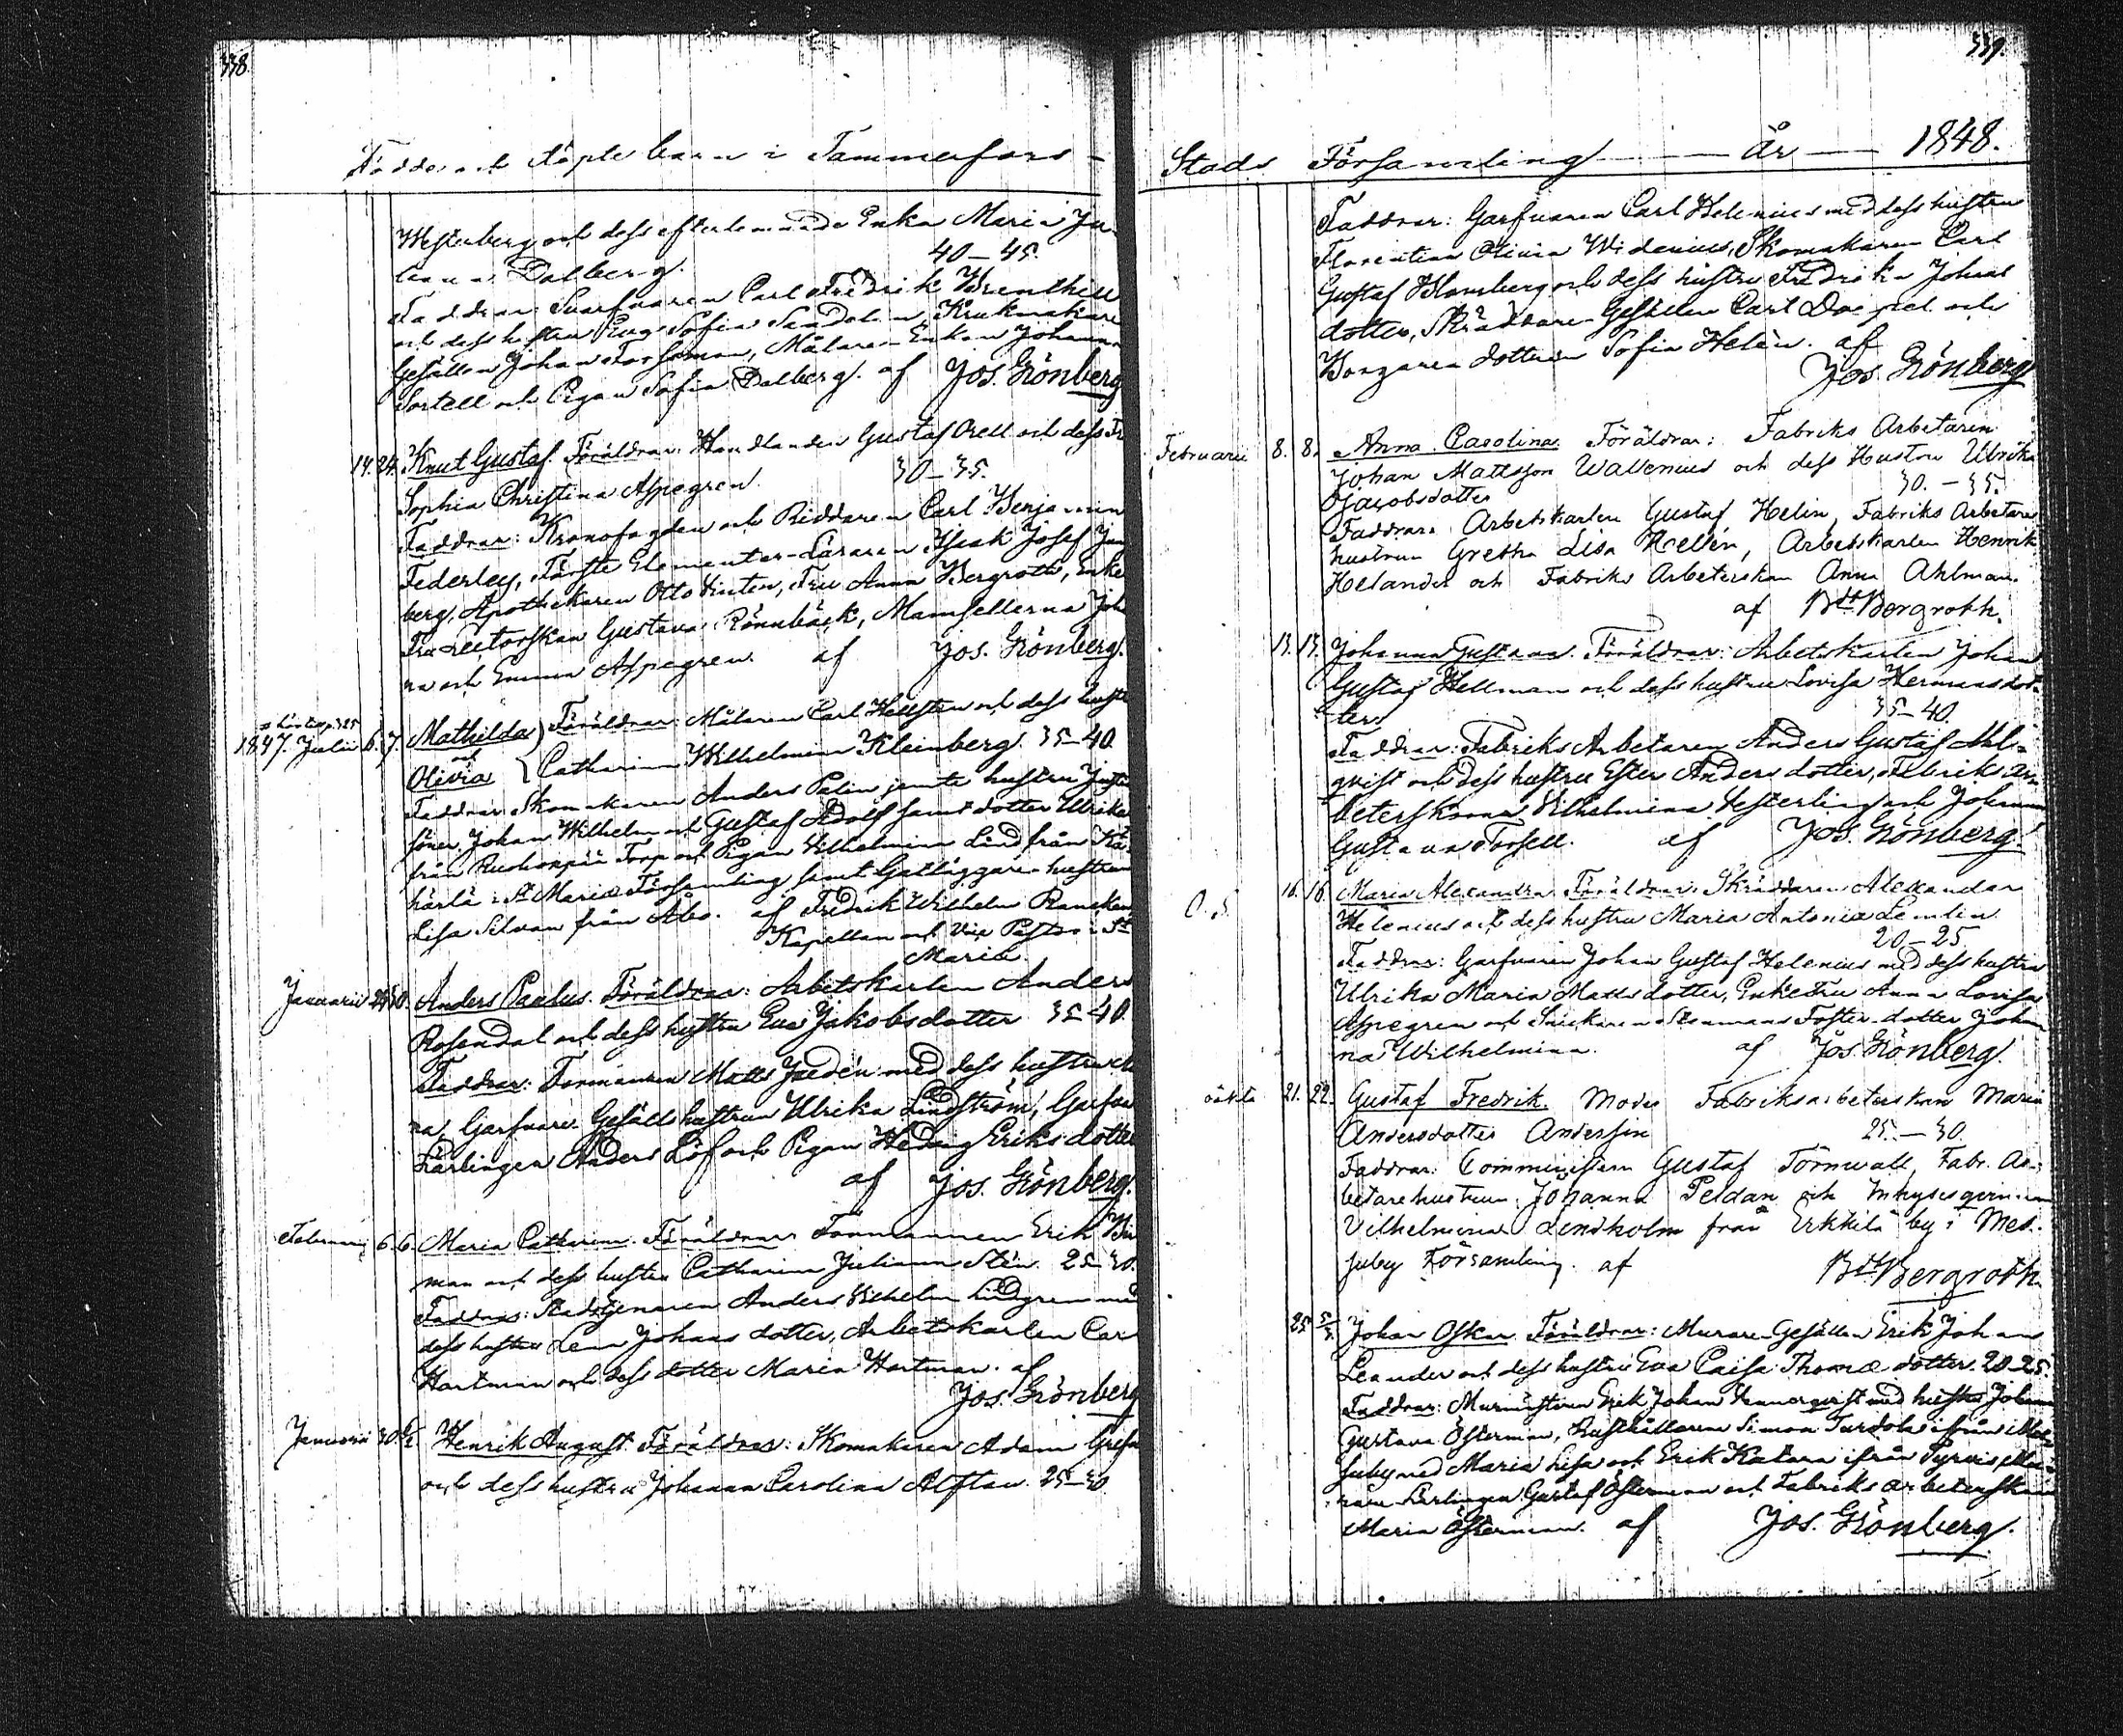 338.
Födde och döpte barn i Tammerfors
Westerberg och dess efterlemnade Enka Maria Ju-
liana Dalberg. 40–45.
Faddrar: Svarfvaren Carl Fredrik
och dess hustru Eva Sofia Sandelin, Krukmakare
Gesällen Johan Forssman, Målare Enkan Johanna
Sortell och Pigan Sofia Dalberg. af Jos. Grönberg
14. 24. Knut Gustaf. Föräldrar: Handlanden Gustaf Orell och dess Fr
Sophia Christina Aspegren. 30–35.
Faddrar: Kronofogden och Riddaren Carl Benjamin
Federley, Förste Elementar-Läraren Isak Josef
berg, Apothekaren Otto, Fru Anna Bergroth, Enke
Fru Rectorskan Gustava Rönnbäck, Mamsellerna Joh
na och Emma Aspegren. af Jos. Grönberg.
1847. Julii 6. 7. Mathilda Föräldrar: Målaren Carl Hellsten och dess hust
och
Olivia Catharina Wilhelmina Kleinberg. 35–40
Faddrar: Skomakaren Anders Palin jemte hustru
söner Johan Wilhelm och Gustaf Adolf samt dotter Ulrika
från Torp och Pigan Vilhelmina Lind från
härlä i St Marie Församling samt Gatläggare hustrun
Lisa Silvan från Åbo. af Fredrik Wilhelm
Kapellan och Vice Pastor i St
Marie.
Januarii 29. 30. Anders Paulus. Föräldrar: Arbetskarlen Anders
Rosendal och dess hustru Eva Jakobsdotter 35–40.
Faddrar: Formannen Matts med dess hustru
na, Garfvare Gesälls hustrun Ulrika Lindström, Garfva
Lärlingen Anders Löf och Pigan Hedvig Eriksdotter
af Jos. Grönberg.
Februarii 6. 6. Maria Catharina. Föräldrar: Formannen Erik
man och dess hustru Catharina Juliana Stén. 25–30.
Faddrar: Stadstjenaren Anders Vilhelm Lindgren med
dess hustru Lena Johansdotter, Arbetskarlen Car
Hartman och dess dotter Maria Hartman. af
Jos. Grönberg
Januarii 30. 6/2 Henrik August. Föräldrar: Skomakaren Adam
och dess hustru Johanna Carolina Alftan. 25–30
339.
Stads Församling år 1848.
Faddrar: Garfvaren Carl Helenius med dess hustru
Florentina Olivia Widenius, Skomakaren Carl
Gustaf Blomberg och dess hustru Fredrika Johans
dotter, Skräddare Gesällen Carl och
Borgaren dottren Sofia Helén. af
Jos. Grönberg
Februarii 8. 8. Anna Carolina. Föräldrar: Fabriks Arbetaren
Johan Mattsson Wallenius och dess Hustru Ulrika
Jacobsdotter 30.–35.
Faddrar: Arbetskarlen Gustaf Helin, Fabriks Arbetare
hustrun Gretha Lisa Helin, Arbetskarlen Henrik
Helander och Fabriks Arbeterskan Anna Ahlman.
af Bdt Bergroth.
13. 13. Johanna Gustava. Föräldrar: Arbetskarlen Johan
Gustaf Hellman och dess hustru Lovisa Hermansdot-
ter. 35–40.
Faddrar: Fabriks Arbetaren Anders Gustaf Ahl-
qvist och dess hustru Ester Andersdotter, Fabriks Ar-
beterskorna Vilhelmina Vesterling och Johanna
Gustava Forsell. af Jos. Grönberg.
O. S. 16. 16. Maria Alexandra. Föräldrar: Skräddaren Alexander
Helenius och dess hustru Maria Antonia Lemlin.
20–25
Faddrar: Garfvaren Johan Gustaf Helenius med dess hustru
Ulrika Maria Mattsdotter, Enkefru Anna Lovisa
Aspegren och Snickaren Stenmans Foster-dotter Johan
na Wilhelmina. af Jos. Grönberg.
oäkta 21. 22. Gustaf Fredrik. Moder Fabriksarbeterskan Maria
Andersdotter Andersin 25.–30.
Faddrar: Comministern Gustaf Törnwall, Fabr. Ar-
betare hustrun Johanna Peldan och Inhysesqvinnan
Vilhelmina Lindholm från Erkkilä by i Mes-
suby Församling. af Bdt Bergroth.
25. 5/3. Johan Oskar. Föräldrar: Murare-Gesällen Erik Johan
Leander och dess hustru Eva Caisa Thomæ dotter. 20–25.
Faddrar: Murmästaren Erik Johan med hustru Johanna
Gustava Österman, Rusthållaren Simon Turdola ifrån Mes-
suby med Maria Lisa och Erik Katara ifrån
Lärlingen Gustaf Österman och Fabriks arbeterskan
Maria Österman. af Jos. Grönberg.